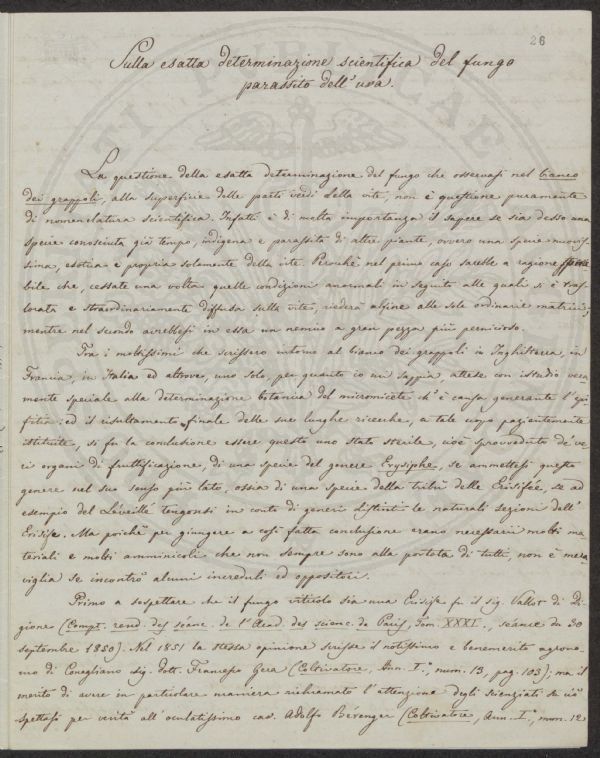 26
Sulla esatta determinazione scientifica del fungo
parassito dell'uva.
La questione della esatta determinazione del fungo che osservasi nel bianco
dei grappoli, alla superficie delle parti verdi della vite, non è questione puramente
di nomenclatura scientifica. Infatti è di molta importanza il sapere se sia desso una
specie conosciuta già tempo, indigena e parassita di altre piante, ovvero una specie nuovis-
sima, esotica e propria solamente della vite. Perocchè nel primo caso sarebbe a ragione
bile che, cessate una volta quelle condizioni anormali in seguito alle quali si è tras-
locata e straordinariamente diffusa sulla vite, riederà alfine alle sole ordinarie matrici;
mentre nel secondo avrebbesi in essa un nemico a gran pezza più pernicioso.
Tra i moltissimi che scrissero intorno al bianco dei grappoli in Inghilterra, in
Francia, in Italia ed altrove, uno solo, per quanto io mi sappia, attese con istudio vera-
mente speciale alla determinazione botanica del micromicete ch'è causa generante l'epi-
fitia: ed il risultamento finale delle sue lunghe ricerche, a tale uopo pazientemente
istituite, si fu la conclusione essere questo uno stato sterile, cioè sprovveduto de' ve-
ri organi di fruttificazione, di una specie del genere Erysiphe, se ammettesi questo
genere nel suo senso più lato, ossia di una specie della tribù delle Erisifée, se ad
esempio del Léveillé tengonsi in conto di generi distinti le naturali sezioni dell'
Erisife. Ma poichè per giungere a così fatta conclusione erano necessarii molti ma-
teriali e molti amminicoli che non sempre sono alla portata di tutti, non è mera-
viglia se incontrò alcuni increduli ed oppositori.
Primo a sospettare che il fungo viticolo sia una Erisife fu il sig. Vallot di Di-
gione (Compt. rend. des séanc. de l'Acad. des scienc. de Paris, Tom. XXXI., séance du 30
septembre 1850). Nel 1851 la stessa opinione scrisse il notissimo e benemerito agrono-
mo di Conegliano sig. dott. Francesco Gera (Coltivatore, Ann. I.°, num. 13, pag. 103); ma il
merito di avere in particolare maniera richiamato l'attenzione degli scienziati su ciò
spettasi per verità all'oculatissimo cav. Adolfo Bérenger (Coltivatore, Ann. I.°, num. 12